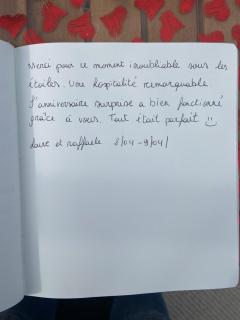 Merci pour ce moment inoubliable sous les
étoiles. Une hospitalité remarquable.
L'anniversaire surprise a bien fonctionné
grâce à vous. Tout était parfait :)
Laure et Raffaele 8/04-9/04/